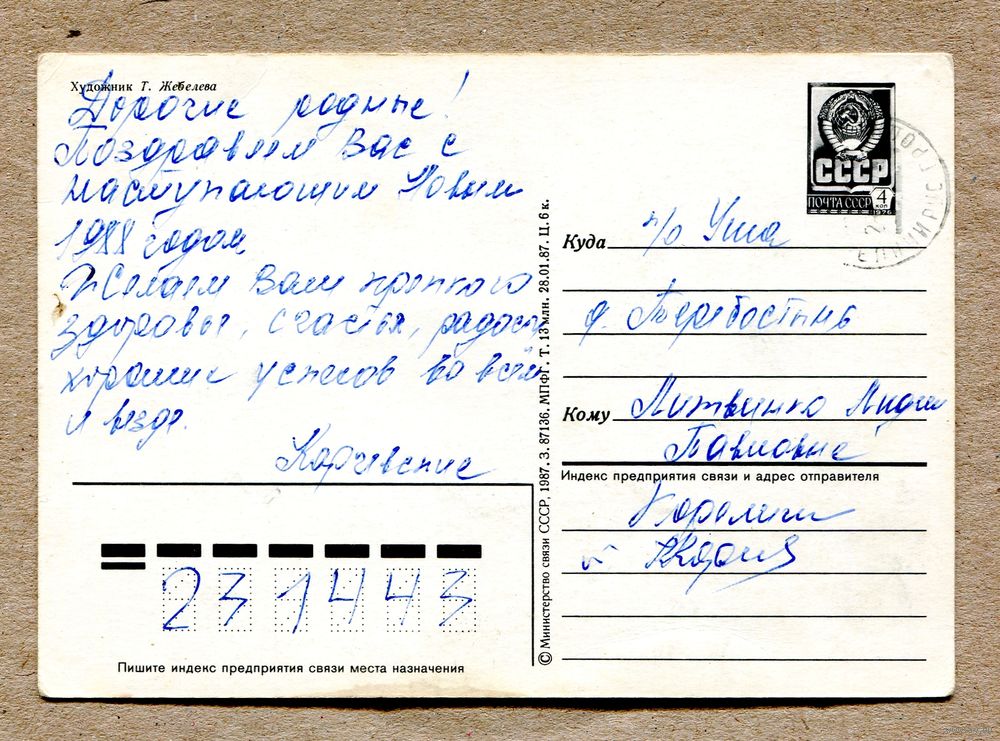 Художник Т. Жебелева
Дорогие родные!
Поздравляем Вас с
наступающим Новым
1988 годом
Желаем Вам крепкого
здоровья, счастья, радости
хороших успехов во всём
и везде.
Карчевские
СССР
ПОЧТА СССР 4 КОП
1976
Куда п/о Уша
д.
Кому Литвинко Лидии
Павловне
Индекс предприятия связи и адрес отправителя
231443
Пишите индекс предприятия связи места назначения
© Министерство связи СССР, 1987. З. 87136. МПФГ. Т. 13 млн. 28.01.87. Ц. 6 к.